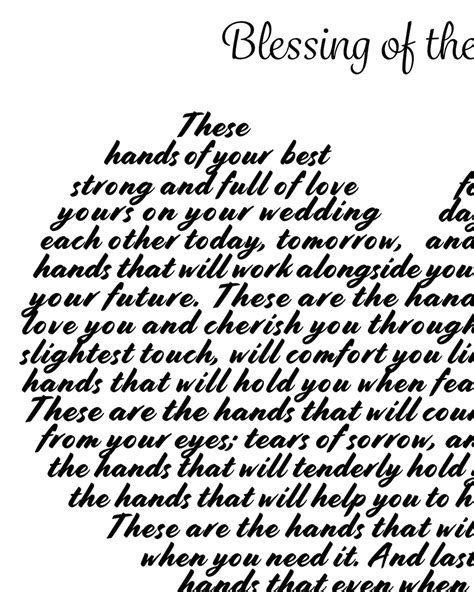 Blessing of the
These
hands of your best
strong and full of love
fo
yours on your wedding
day
each other today, tomorrow, and
hands that will work alongside you
your future. These are the hand
love you and cherish you through
slightest touch, will comfort you li
hands that will hold you when fea
These are the hands that will coun
from your eyes; tears of sorrow, an
the hands that will tenderly hold
the hands that will help you to h
These are the hands that will
when you need it. And last
hands that even when